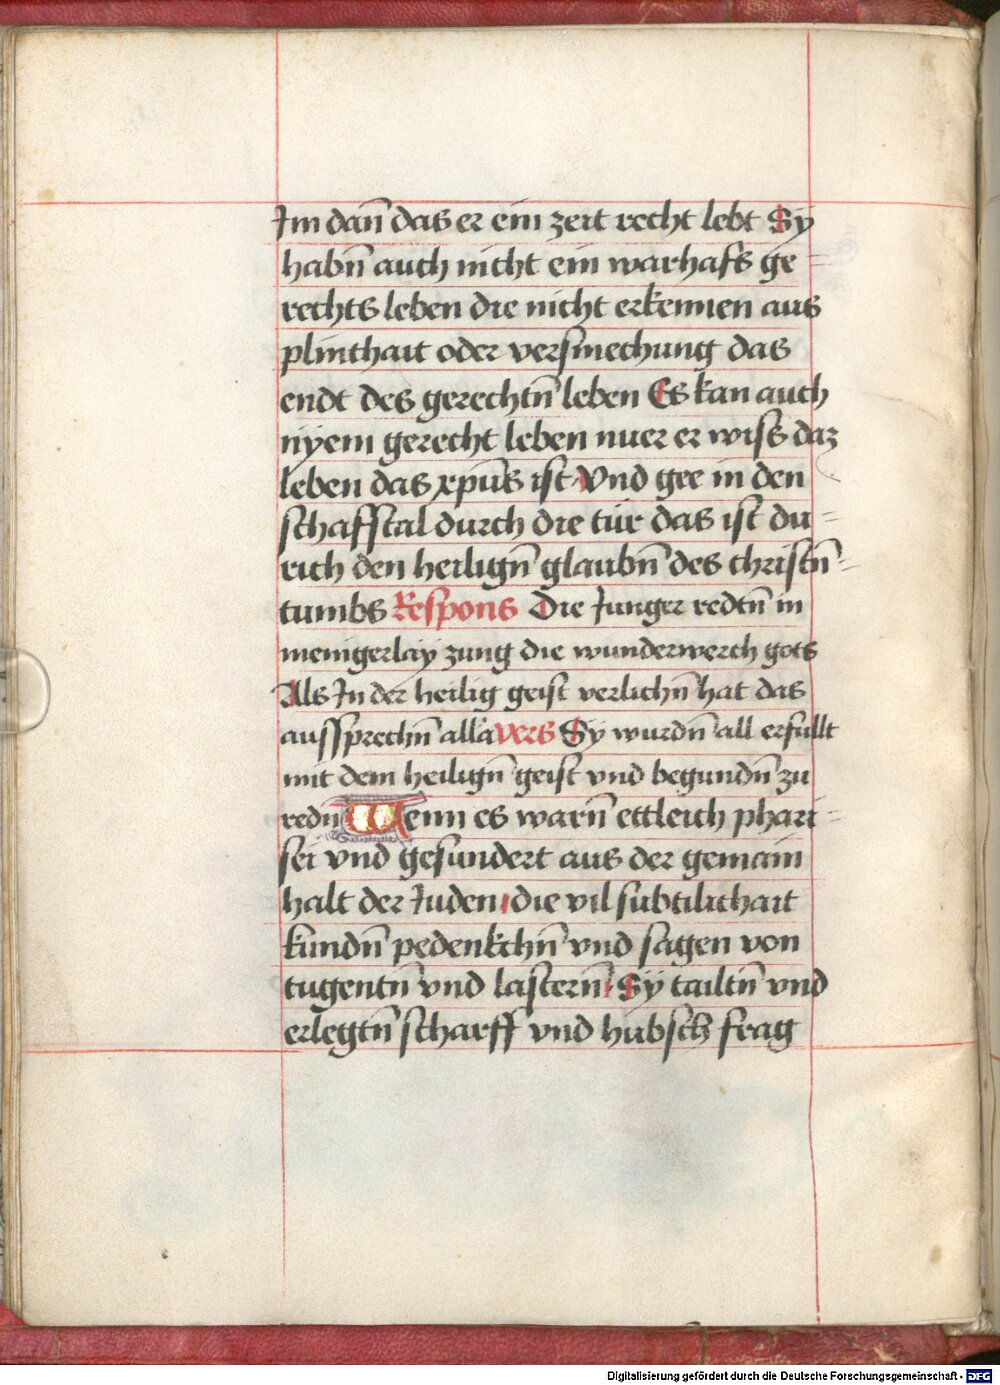 Im dan̄ das er ein zeit recht lebt Sy
habn̄ auch nicht ein warhafts ge=
rechts leben die nicht erkennen aus
plinthait oder versmechung das
endt des gerechtn̄ leben Es kan auch
nyem gerecht leben nuer er wiss daz
leben das xpūs ist Vnd gee in den
schafstal durch die tür das ist du=
rich den heilign̄ glaubn̄ des christn̄=
tumbs Respons Die Junger redtn̄ in
menigerlay zung die wunderwerch gots
Als In der heilig geist verlichn̄ hat das
aussprechn̄ alla vers Sy wurdn̄ all erfullt
mit dem heilign̄ geist vnd begundn̄ zu
redn̄ Wenn es warn̄ ettleich phari=
sei vnd gesundert aus der gemain
halt der Juden die vil subtilithait
kundn̄ pedenkchn̄ vnd sagen von
tugentn̄ vnd lastern̄ Sy tailtn̄ vnd
erlegtn̄ scharff vnd hubsch frag
Digitalisierung gefördert durch die Deutsche Forschungsgemeinschaft - DFG